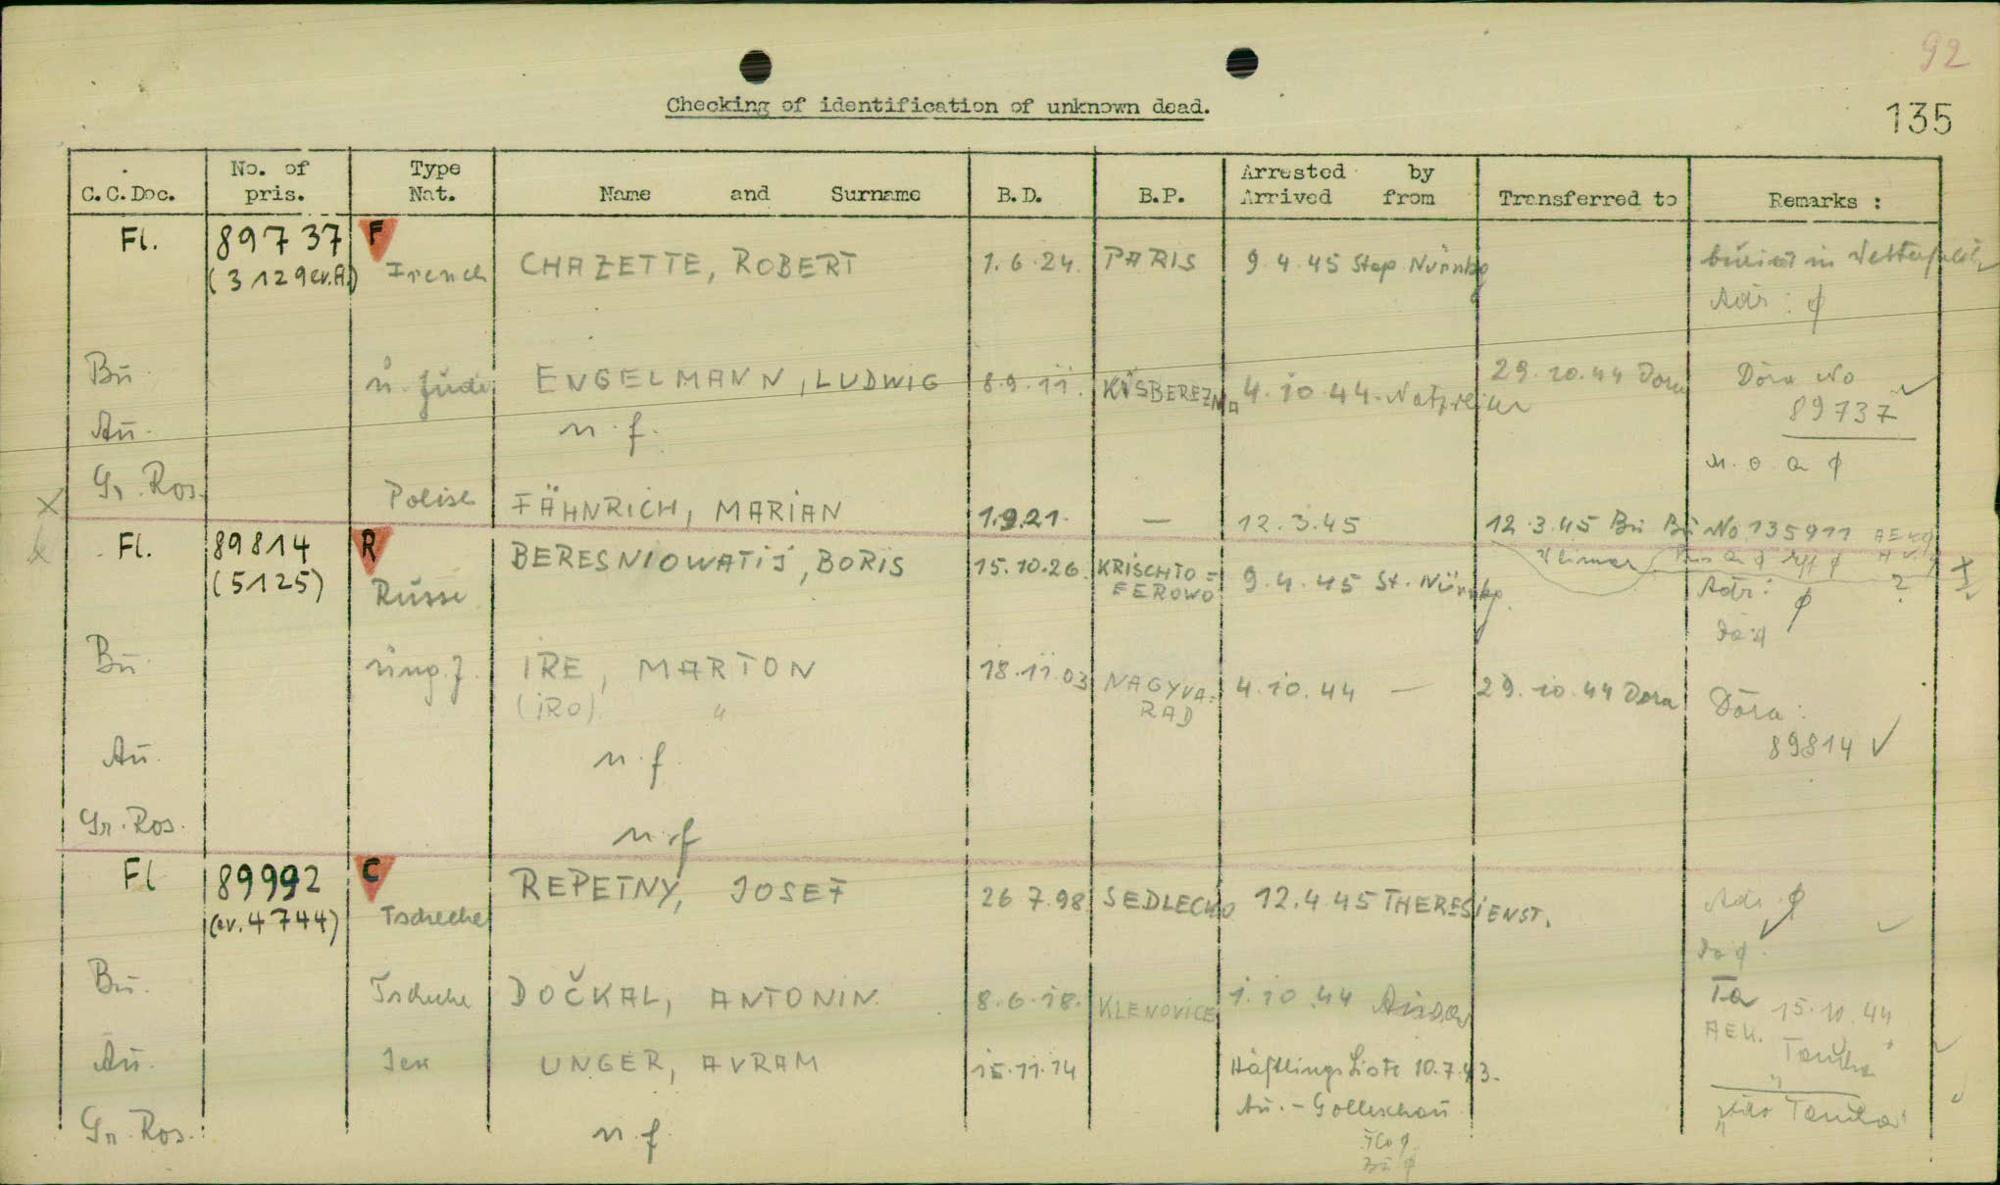 92
135
Checking of identification of unknown dead.
C.C.Doc. No. of pris. Type Nat. Name and Surname B.D. B.P. Arrested by Arrived from Transferred to Remarks :
Fl. 89737 F CHAZETTE, ROBERT 1.6.24. PARIS 9.4.45 Stap Nürnbg in
(3129 ev.A.) French Adr: ϕ
Bu ENGELMANN, LUDWIG 8.9.11. 4.10.44 - 29.10.44 Dora Dora No
89737
Au. n.f.
Gr. Ros. Polish FÄHNRICH, MARIAN 1.9.21. — 12.3.45 12.3.45 Bu Bu No 135911
Fl. 89814 R BERESNIOWATIJ, BORIS 15.10.26. KRISCHTO= 9.4.45 St. Nürnbg. Adr: ϕ ?
(5125) Russe FEROWO
Bu ung. J. IRE, MARTON 18.11.03 NAGYVA= 4.10.44 — 29.10.44 Dora Dora:
(IRO) " RAD
89814 ✓
Au. n.f.
Gr. Ros. n.f
Fl 89992 C REPETNY, JOSEF 26 7.98 SEDLECKO 12.4.45 THERESIENST. Adr. ϕ
(ev. 4744) Tscheche
Bu. Tscheche DOČKAL, ANTONIN. 8.6.18. KLENOVICE 1.10.44 15.10.44
AEK.
Au. UNGER, AVRAM 15.11.14 Häftlings Liste 10.7.43.
Au. - Golleschau
Gr. Ros. n.f.